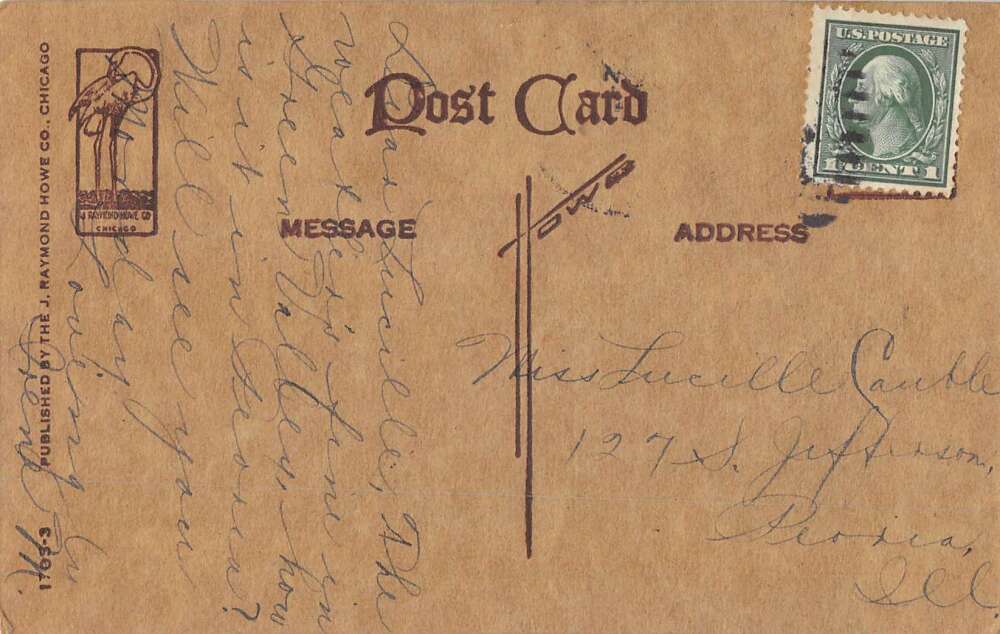 Post Card
U.S. POSTAGE
1 CENT 1
MESSAGE
ADDRESS
Dear Lucille; The
weather is fine in
Green Valley, how
is it in Peoria?
Will see you
Sunday
Loving
Friend
M.
Miss Lucille Cauble
127 S. Jefferson,
Peoria,
Ill.
J RAYMOND HOWE CO
CHICAGO
1703-3 PUBLISHED BY THE J. RAYMOND HOWE CO., CHICAGO